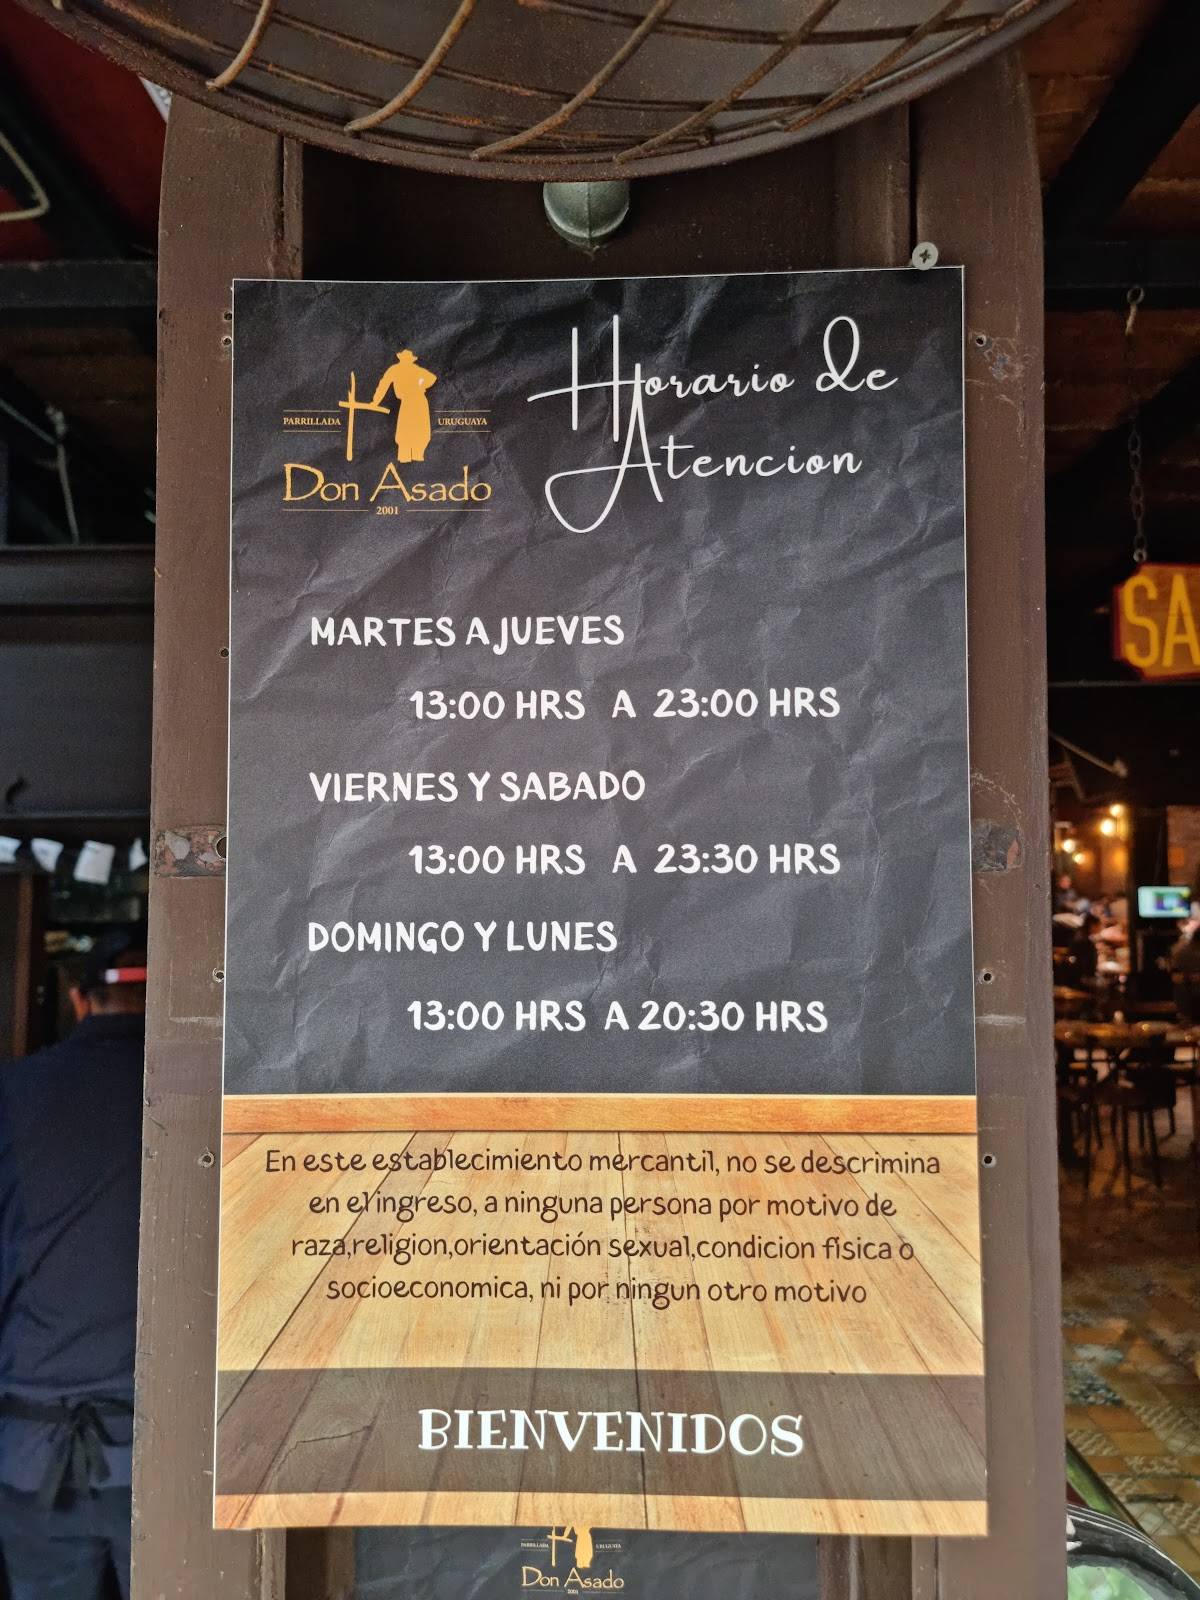 Horario de
Atencion
PARRILLADA URUGUAYA
Don Asado
2001
MARTES A JUEVES
13:00 HRS A 23:00 HRS
VIERNES Y SABADO
13:00 HRS A 23:30 HRS
DOMINGO Y LUNES
13:00 HRS A 20:30 HRS
SA
En este establecimiento mercantil, no se descrimina
en el ingreso, a ninguna persona por motivo de
raza,religion,orientación sexual,condicion física o
socioeconomica, ni por ningun otro motivo
BIENVENIDOS
PARRILLADA URUGUAYA
Don Asado
2001